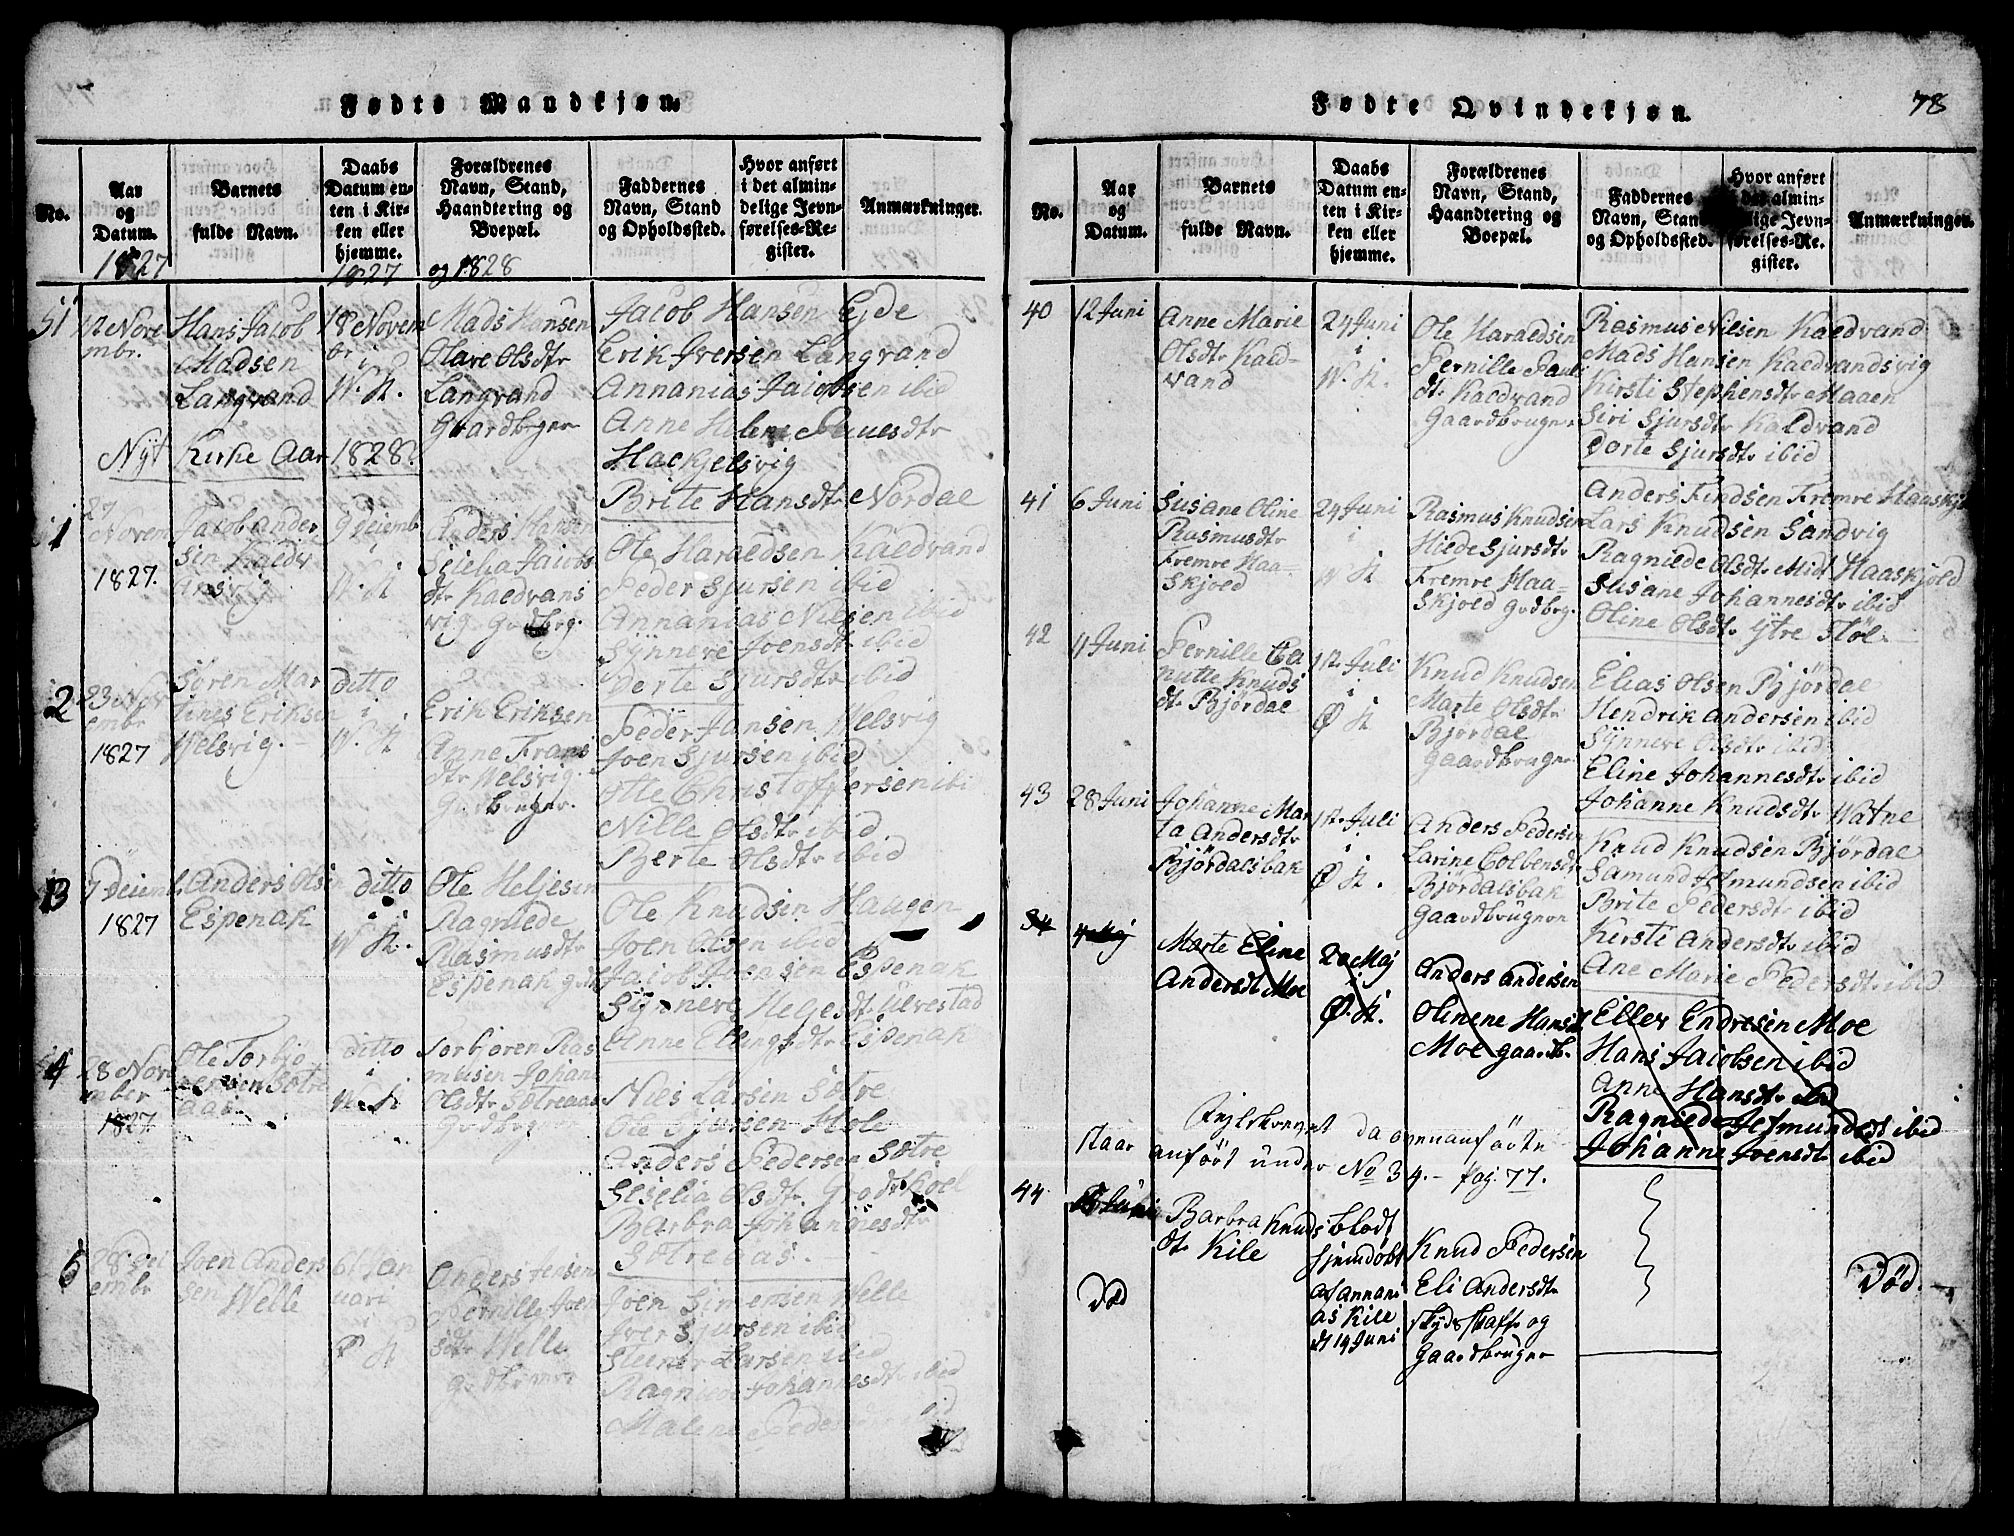 Fødte Mandkjøn.
No.
Aar og Datum.
Barnets fulde Navn.
Daabs Datum enten i Kirken eller hjemme.
Forældrenes Navn, Stand, Haandtering og Boepæl.
Faddernes Navn, Stand og Opholdssted.
Hvor anført i det almindelige Jevnførelses-Register.
Anmærkninger.
1827
1827 og 1828
51
12 Nove
mbr.
Hans Jacob
Madsen
Langvand
18 Novem
br i
W. K.
Mads Hansen
Olave Olsdtr
Langvand
Gaardbrger
Jacob Hansen Ejde
Erik Iversen Langvand
Annanias Jacobsen ibid
Anne Helene Pauesdtr
Hackjelsvig
Brite Hansdtr Nordal
Nyt Kirke Aar 1828
1
27
Novem
1827.
Jacob Ander
sen Kaldv
ansvig
9 Deiemb
i
W. K
Anders Hansen
Seielia Jaiobs
dtr Kaldvans
vig. Gdbrg.
Ole Haraldsen Kaldvand
Peder Sjursen ibid
Annanias Nilsen ibid
Synneve Joensdtr ibid
Berte Sjursdtr ibid
2
23 Nov
embr
1827
Søren Mar
tines Eriksen
Welsvig.
ditto
i
W. K
Erik Eriksen
Anne Frans
dtr Welsvig.
Gaardbruger.
Peder Jansen Welsvig
Joen Sjursen ibid
Otte Christoffersen ibid
Nille Olsdtr ibid
Berte Olsdtr ibid
3
7 Deiemb
1827
Anders Olsen
Espenak
ditto
i
W K.
Ole Heljesen
Ragnilede
Rasmusdtr
Espenak gdb
Ole Knudsen Haugen
Joen Olsen ibid
Jacob Joensen Espenak
Synneve Heljesdtr Ulvestad
Anne Ellingsdtr Espenak
4
28 Nov
ember
1827.
Ole Torbjø
rensen Sætre
aas
ditto
i
W. K
Torbjøren Ras
musen Johane
Olsdtr Sætreaas
Gdbruger
Niels Larsen Sætre
Ole Sjursen Hole
Anders Pedersen Sætre
Seselia Olsdtr Grodtkoel
Barbra Johannesdtr
Sætreaas.
5
28 Dei
embr
Joen Anders
sen Welle
6 Jan
uari
i
Ø K
Anders Jensen
Pernille Joen
sdtr Welle
Gdbruger
Joen Simensen Welle
Iver Sjursen ibid
Steener Larsen ibid
Ragnilde Johannesdtr ibid
Malene Pedersdtr ibid
Fødte Qvindekjøn.
78
No.
Aar og Datum.
Barnets fulde Navn.
Daabs Datum enten i Kirken eller hjemme.
Forældrenes Navn, Stand, Haandtering og Boepæl.
Faddernes Navn, Stand og Opholdssted.
Hvor anført i det almindelige Jevnførelses-Register.
Anmærkninger.
40
12 Juni
Anne Marie
Olsdtr Kald-
vand
24 Juni
i
W. K.
Ole Haraldsen
Pernille Paul
dtr Kaldvand
Gaardbruger
Rasmus Nilsen Kaldvand
Mads Hansen Kaldvandsvig
Kirsti Stephensdtr Maaen
Siri Sjursdtr Kaldvand
Dorte Sjursdtr ibid
41
6 Juni
Susane Oline
Rasmusdtr
Fremre Haa=
skjold
24 Juni
i
W K
Rasmus Knudsen
Hilde Sjursdtr
Fremre Haa=
skjold grdbrg.
Anders Findsen Fremre Haaskjol
Lars Knudsen Sandvig
Ragnilde Olsdtr Midt Haaskjold
Susane Johannesdtr ibid
Oline Olsdtr Ytre Støl.
42
11 Juni
Pernille Ca
nutte Knuds
dtr Bjørdal
1ste Juli
i
Ø K
Knud Knudsen
Marte Olsdtr
Bjørdal
Gaardbruger
Elias Olsen Bjørdal
Hendrik Andersen ibid
Synneve Olsdtr ibid
Eline Johannesdtr ibid
Johanne Knudsdtr Watne
43
28 Juni
Johanne Mar
ta Andersdtr
Bjørdalsbak
1ste Juli
i
Ø K.
Anders Pedersen
Larine Colbensdtr
Bjørdalsbak
Gaardbrugere
Knud Knudsen Bjørdal
Samund Asmundsen ibid
Brite Pedersdtr ibid
Kirsti Andersdtr ibid
Ane Marie Pedersdtr ibid
34
4 Maj
Marte Eline
Andersdtr Moe
20 Maj
i
Ø. K.
Anders Andersen
Olinene Hansd
Moe gaardb.
Eller Endresen Moe
Hans Jacobsen ibid
Anne Hansdtr ibid
Ragnilde Asmundsdt ibid
Johanne Joensdtr ibid
Fejlskrevet da ovenanførte
staar anført under No 34. - pag: 77.
44
Juni
Død
Barbra Knuds
dtr Kile
blodt
hjemdøbt
af Annani
as Kile
d 14 Juni
Knud Pedersen
Eli Andersdtr
Skydsskaffer og
Gaardbruger
Død.